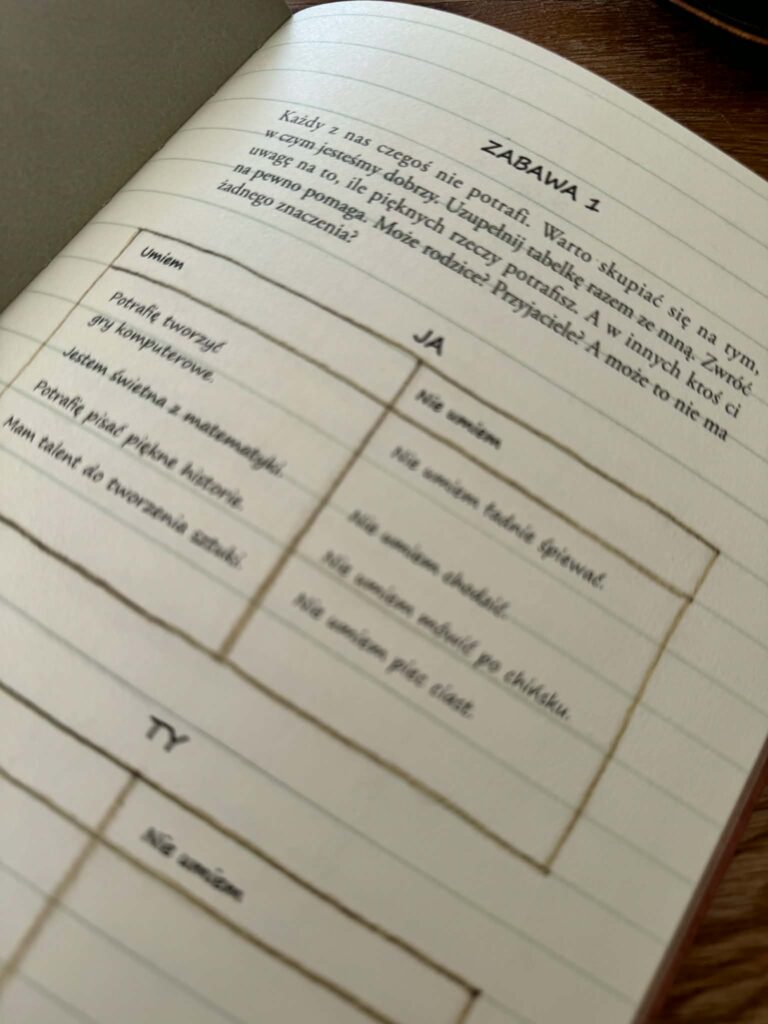 ZABAWA 1
Każdy z nas czegoś nie potrafi. Warto skupiać się na tym,
w czym jesteśmy dobrzy. Uzupełnij tabelkę razem ze mną. Zwróć
uwagę na to, ile pięknych rzeczy potrafisz. A w innych ktoś ci
na pewno pomaga. Może rodzice? Przyjaciele? A może to nie ma
żadnego znaczenia?
JA
Umiem
Potrafię tworzyć
gry komputerowe.
Jestem świetna z matematyki.
Potrafię pisać piękne historie.
Mam talent do tworzenia sztuki.
Nie umiem
Nie umiem ładnie śpiewać.
Nie umiem chodzić.
Nie umiem mówić po chińsku.
Nie umiem piec ciast.
TY
Nie umiem